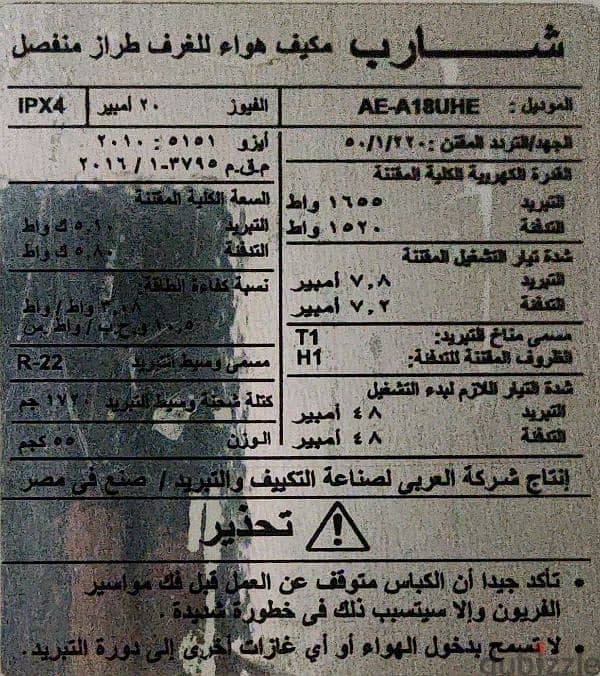 شـــارب مكيف هواء للغرف طراز منفصل
الموديل : AE-A18UHE
الفيوز ٢٠ أمبير
IPX4
الجهد/التردد المقنن : ٥٠/١/٢٢٠
القدرة الكهربية الكلية المقننة
التبريد ١٦٥٥ واط
التدفئة ١٥٢٠ واط
شدة تيار التشغيل المقننة
التبريد ٧,٨ أمبير
التدفئة ٧,٢ أمبير
مسمى مناخ التبريد: T1
الظروف المقننة للتدفئة: H1
شدة التيار اللازم لبدء التشغيل
التبريد ٤٨ أمبير
التدفئة ٤٨ أمبير
أيزو ٥١٥١ : ٢٠١٠
م.ق.م ٣٧٩٥-١ / ٢٠١٦
السعة الكلية المقننة
التبريد ٥,١٠ ك واط
التدفئة ٥,٨٠ ك واط
نسبة كفاءة الطاقة:
٣,٠٨ واط / واط
١٠,٥ و.ح.ب / واط.س
مسمى وسيط التبريد R-22
كتلة شحنة وسيط التبريد ١٧٢٠ جم
الوزن ٥٥ كجم
إنتاج شركة العربى لصناعة التكييف والتبريد / صنع فى مصر
تحذير
• تأكد جيدا أن الكباس متوقف عن العمل قبل فك مواسير
الفريون وإلا سيتسبب ذلك فى خطورة شديدة .
• لا تسمح بدخول الهواء أو أي غازات أخرى إلى دورة التبريد .
dubizzle